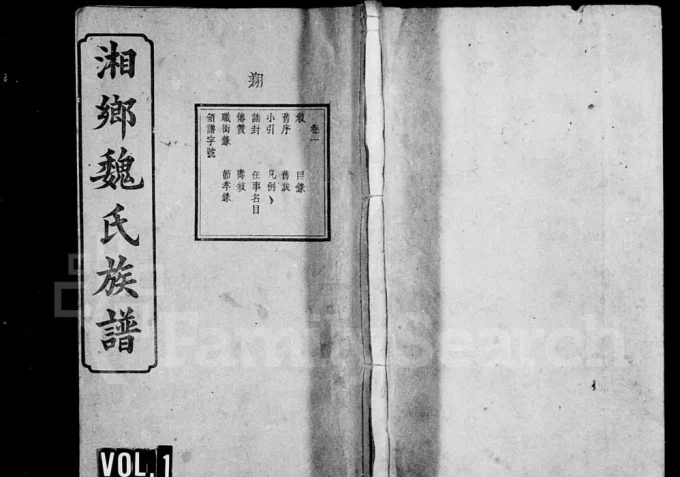 湘鄉魏氏族譜
翔
卷一
敘 目錄
舊序 舊敘
小引 凡例
誥封 任事名目
傳贊 壽敘
職銜錄 節孝錄
領譜字號
VOL. 1
FamilySearch